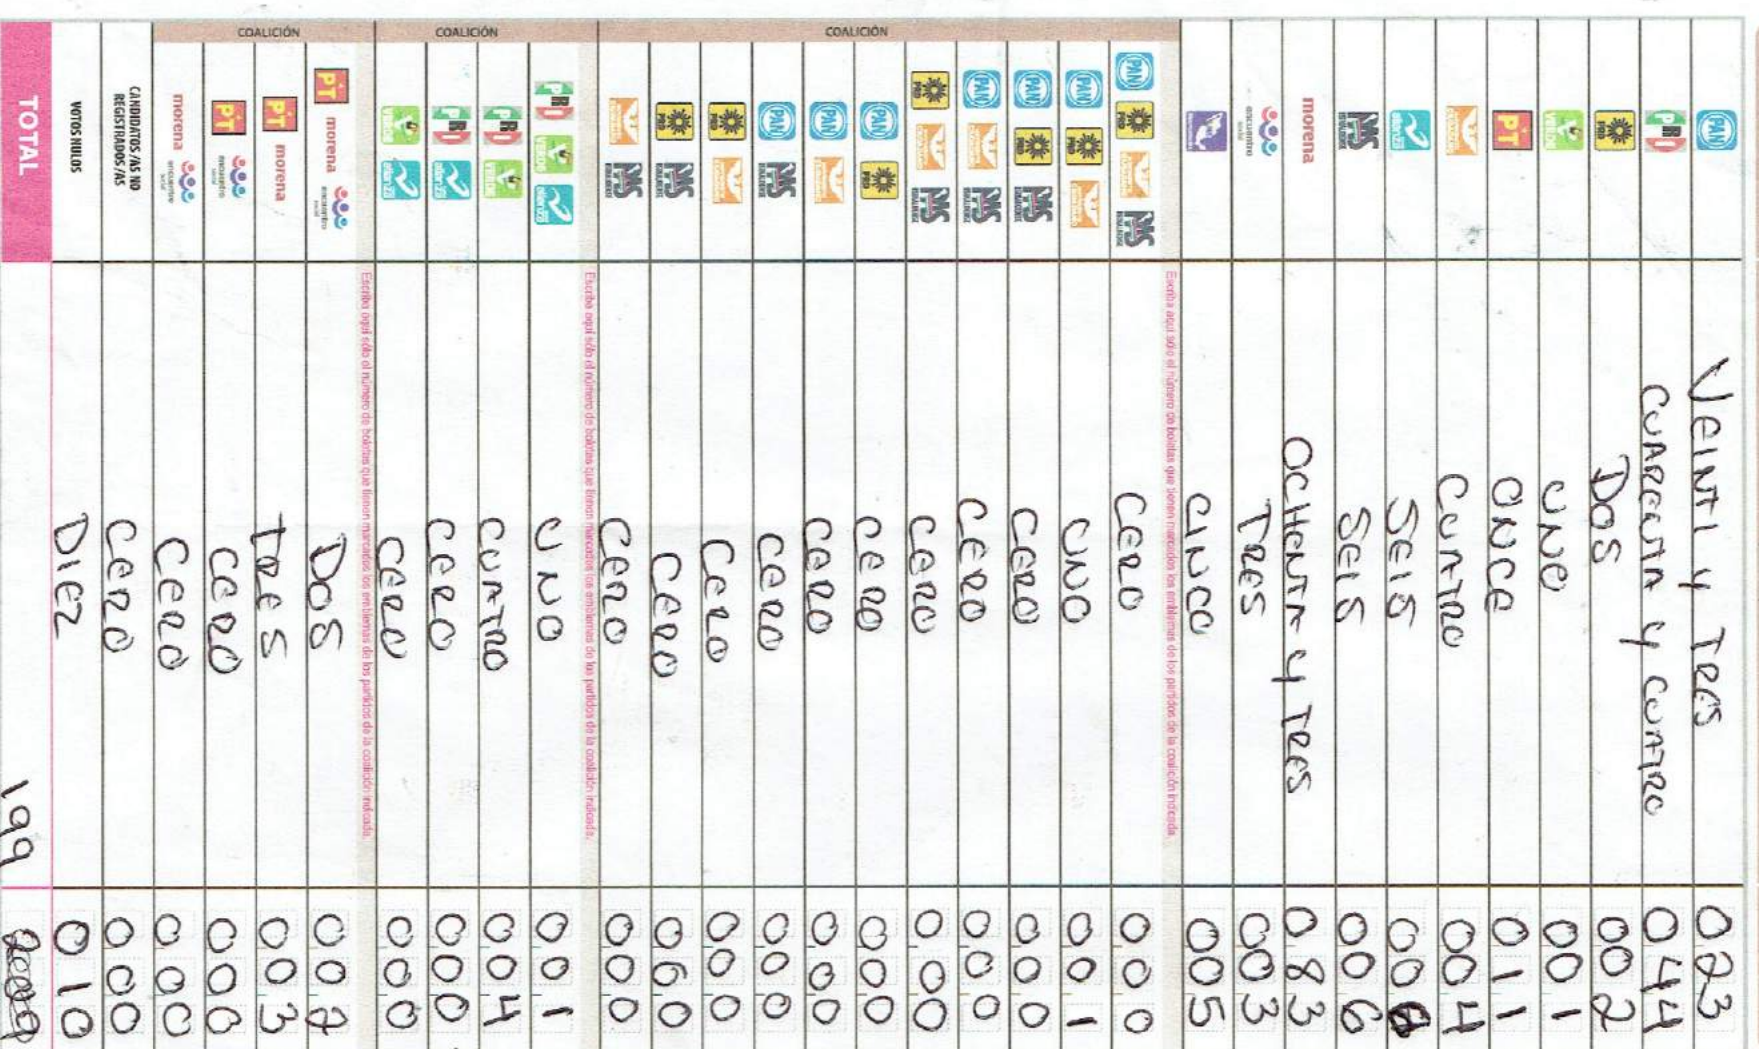 PAN VEINTI Y TRES 023
PRI CUARENTA Y CUATRO 044
PRD DOS 002
VERDE UNO 001
PT ONCE 011
CUATRO 004
alianza SEIS 006
MAS SEIS 006
morena OCHENTA Y TRES 083
encuentro social TRES 003
CINCO 005
Escriba aquí sólo el número de boletas que tienen marcados los emblemas de los partidos de la coalición indicada.
COALICIÓN
PAN PRD MAS CERO 000
PAN PRD UNO 001
PAN PRD MAS CERO 000
PAN MAS CERO 000
PRD MAS CERO 000
PAN PRD CERO 000
PAN CERO 000
PAN MAS CERO 000
PRD CERO 000
PRD MAS CERO 000
MAS CERO 000
Escriba aquí sólo el número de boletas que tienen marcados los emblemas de los partidos de la coalición indicada.
COALICIÓN
PRI VERDE alianza UNO 001
PRI VERDE CUATRO 004
PRI alianza CERO 000
VERDE alianza CERO 000
Escriba aquí sólo el número de boletas que tienen marcados los emblemas de los partidos de la coalición indicada.
COALICIÓN
PT morena encuentro social DOS 002
PT morena TRES 003
PT encuentro social CERO 000
morena encuentro social CERO 000
CANDIDATOS /AS NO REGISTRADOS /AS CERO 000
VOTOS NULOS DIEZ 010
TOTAL 199